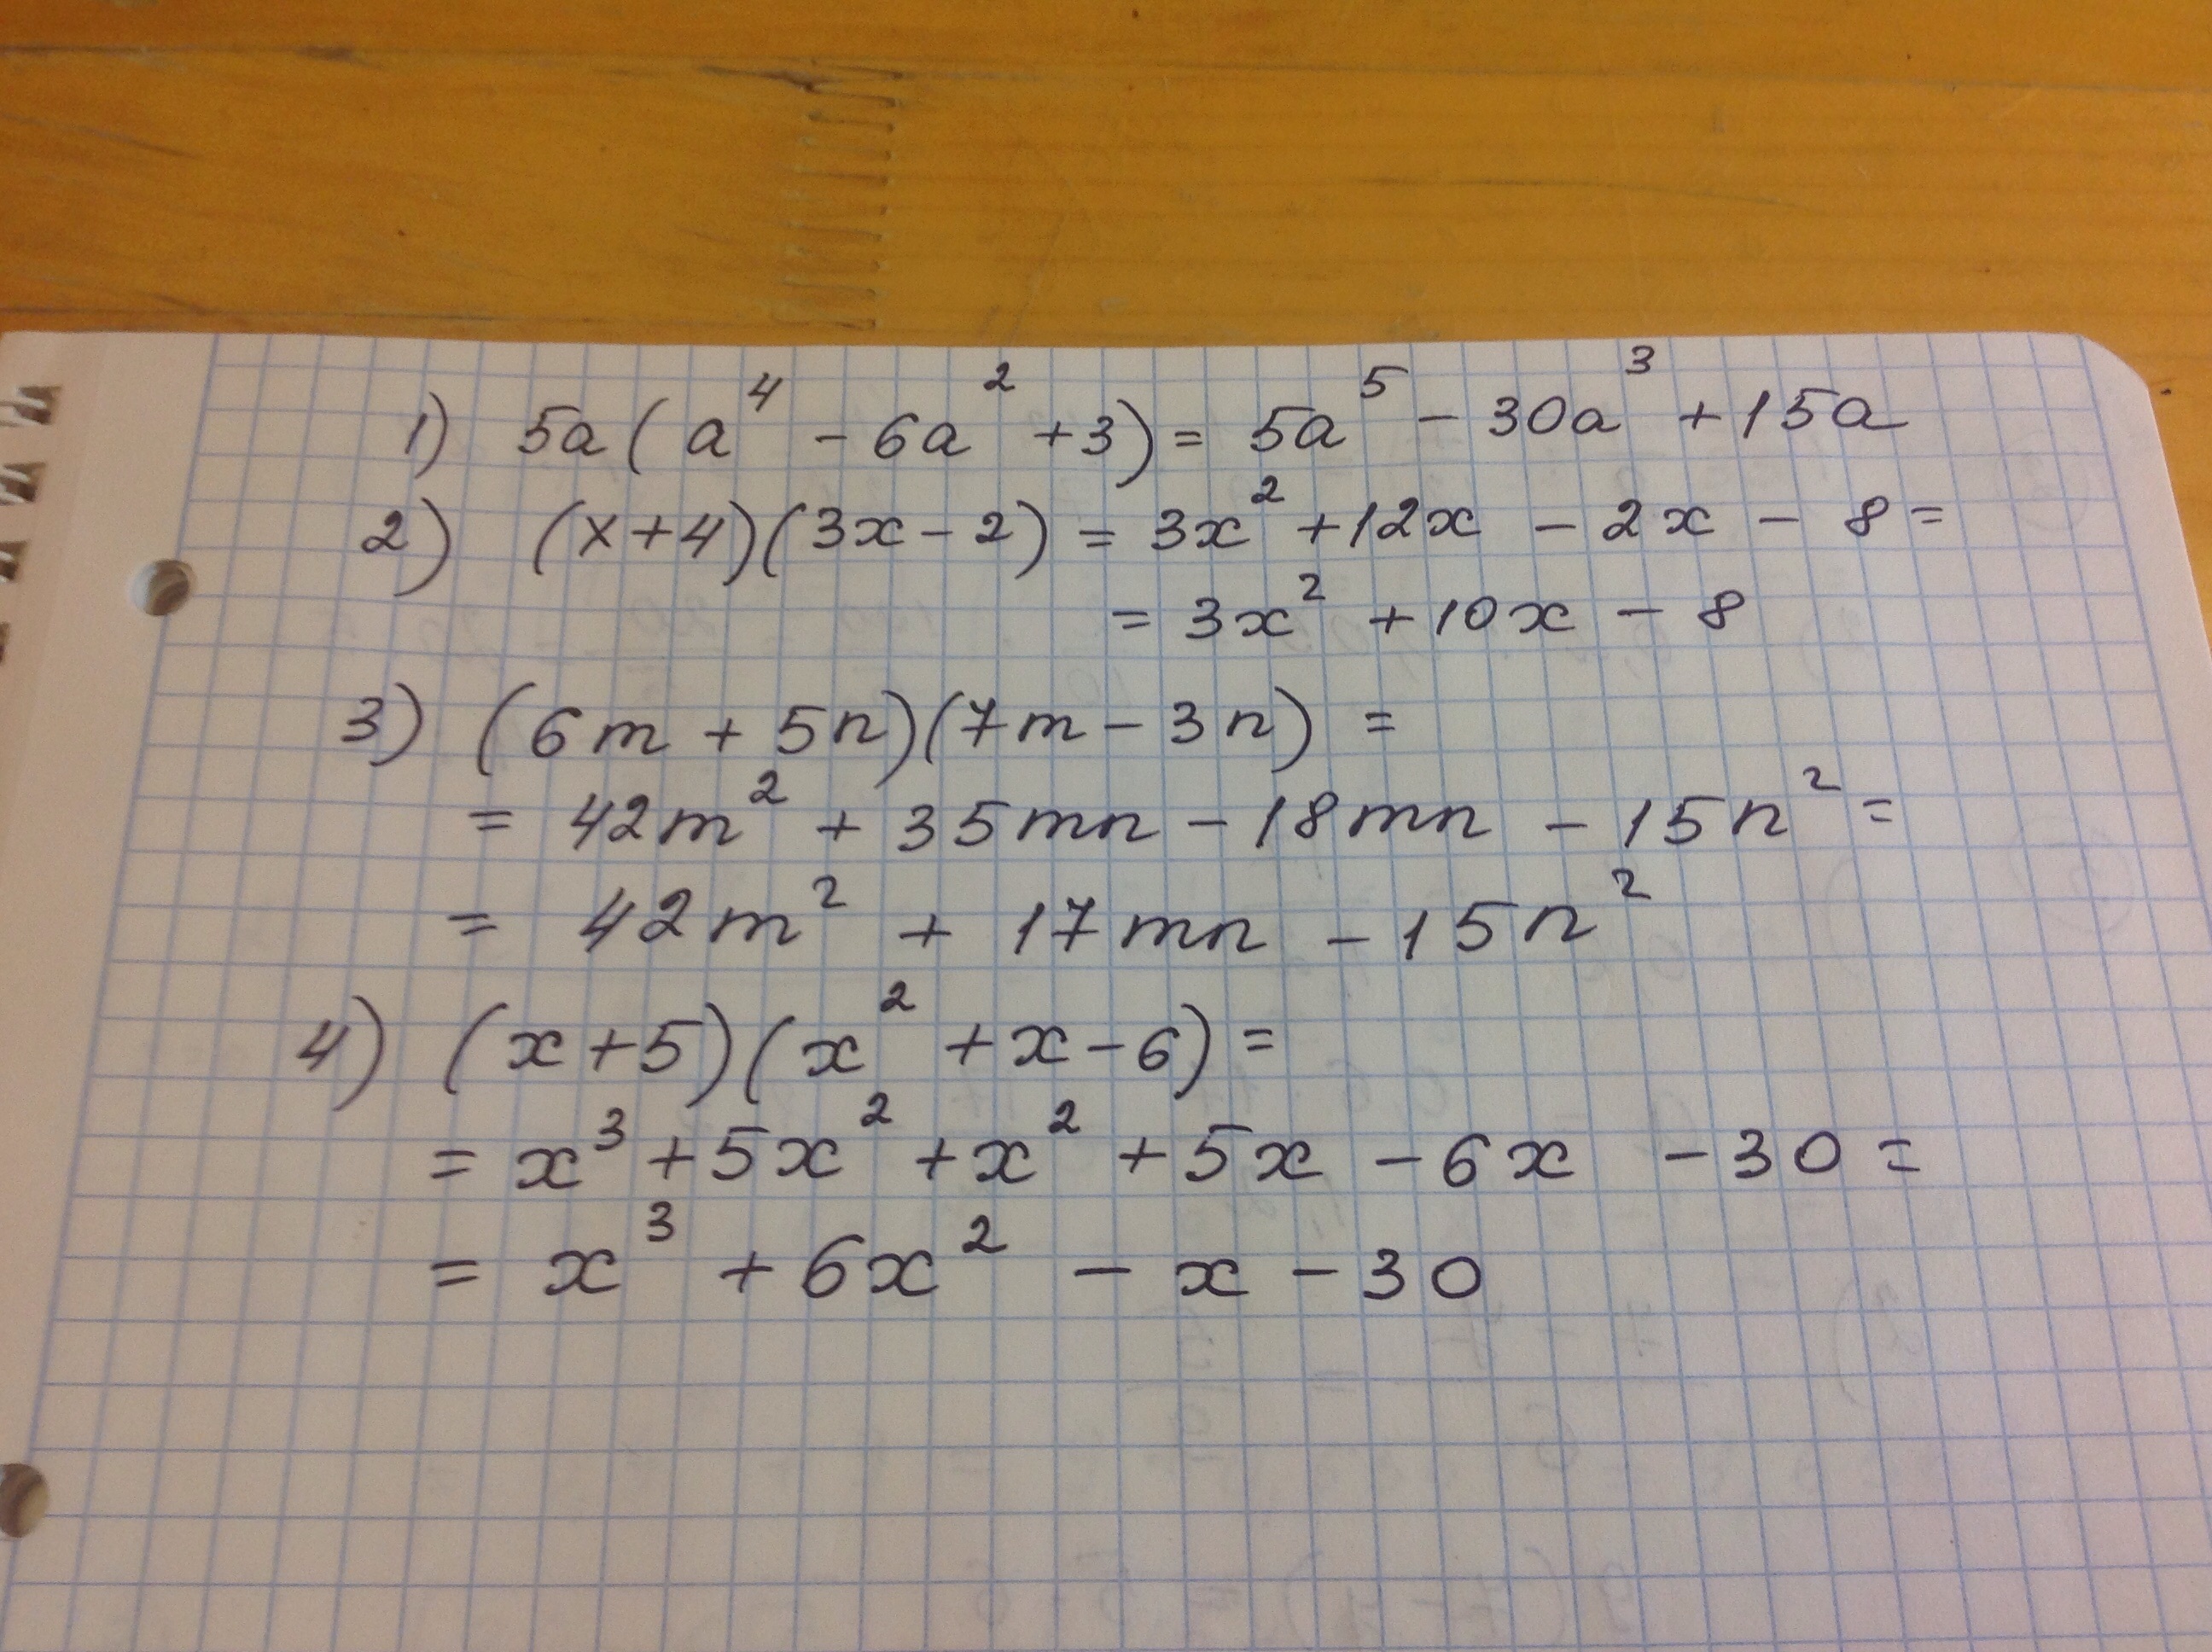 1) 5a(a⁴ - 6a² + 3) = 5a⁵ - 30a³ + 15a
2) (x+4)(3x-2) = 3x² + 12x - 2x - 8 =
= 3x² + 10x - 8
3) (6m + 5n)(7m - 3n) =
= 42m² + 35mn - 18mn - 15n² =
= 42m² + 17mn - 15n²
4) (x+5)(x² + x - 6) =
= x³ + 5x² + x² + 5x - 6x - 30 =
= x³ + 6x² - x - 30